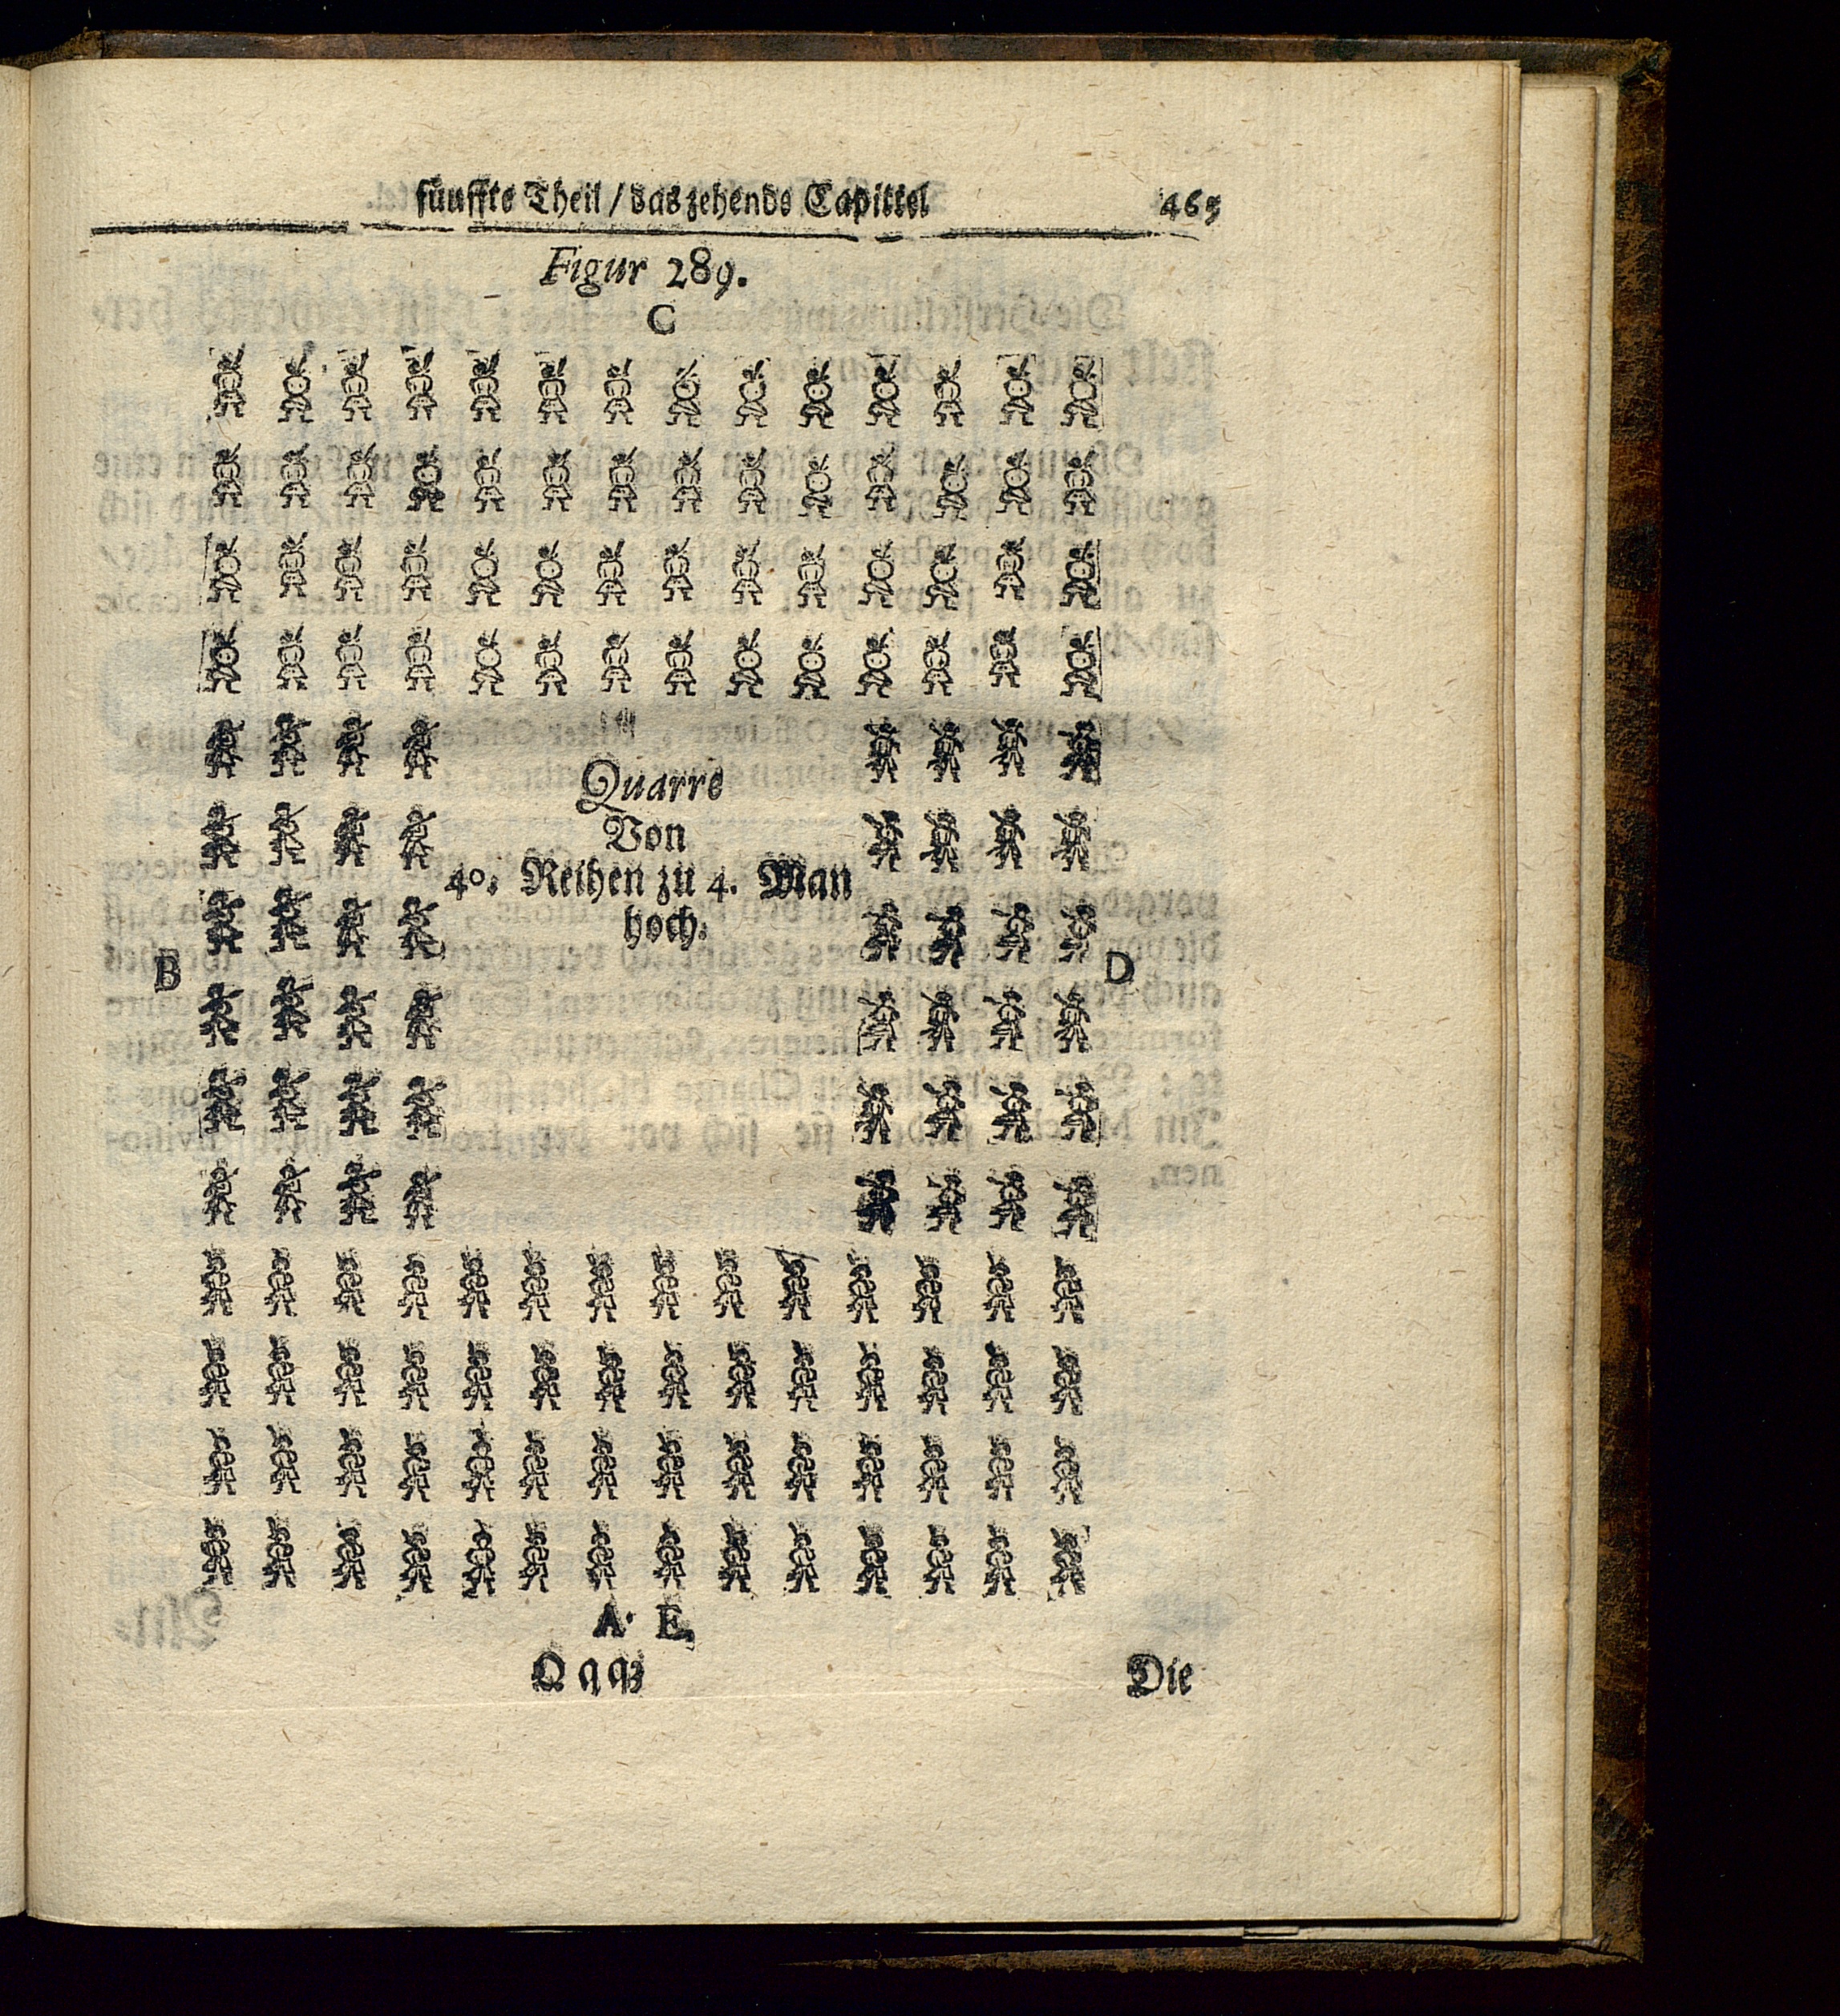 fünffte Theil / das zehende Capittel 465
Figur 289.
C
Quarre
Von
40. Reihen zu 4. Man
hoch.
B
D
A. E.
Qqq3
Die